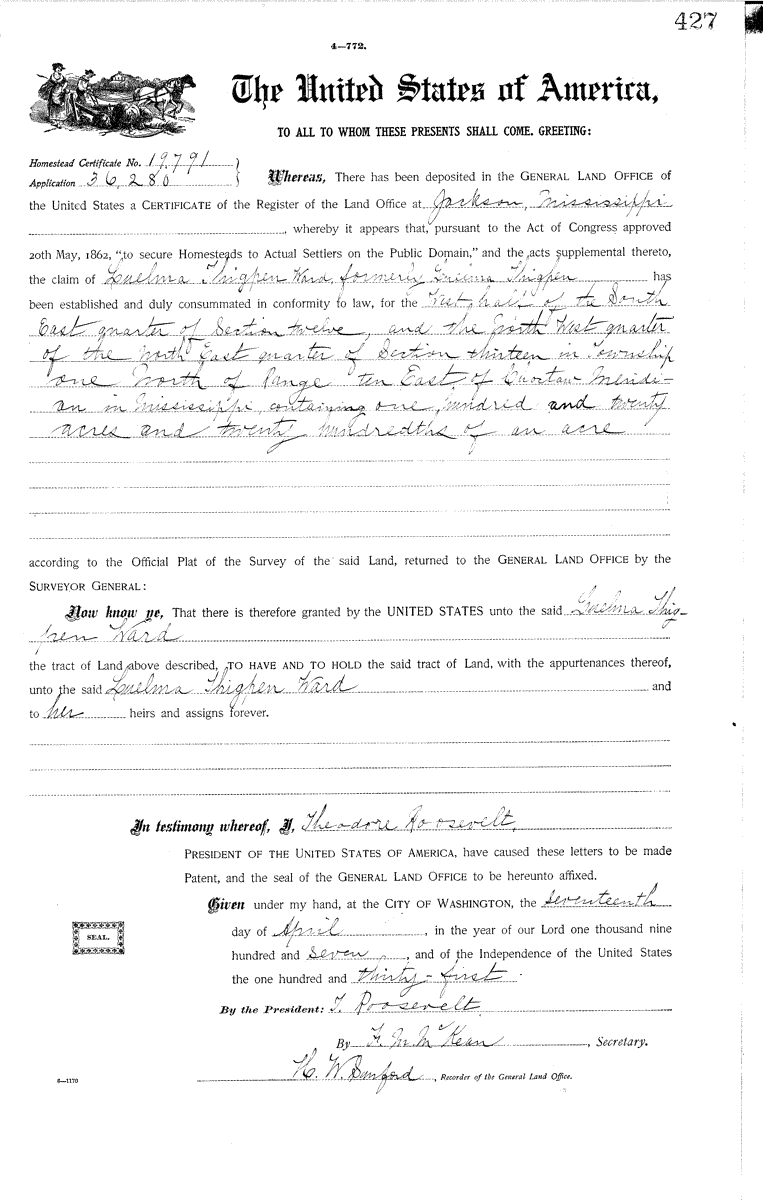 427
4—772.
The United States of America,
TO ALL TO WHOM THESE PRESENTS SHALL COME, GREETING:
Homestead Certificate No. 19791
Application 36280
Whereas, There has been deposited in the GENERAL LAND OFFICE of
the United States a CERTIFICATE of the Register of the Land Office at Jackson, Mississippi
, whereby it appears that, pursuant to the Act of Congress approved
20th May, 1862, "to secure Homesteads to Actual Settlers on the Public Domain," and the acts supplemental thereto,
the claim of Luelma Thigpen Ward, formerly Luelma Thigpen has
been established and duly consummated in conformity to law, for the West half of the South
East quarter of Section twelve, and the North West quarter
of the North East quarter of Section thirteen in Township
one North of Range ten East of Choctaw Meridi-
an in Mississippi, containing one hundred and twenty
acres and twenty hundredths of an acre
according to the Official Plat of the Survey of the said Land, returned to the GENERAL LAND OFFICE by the
SURVEYOR GENERAL:
Now know ye, That there is therefore granted by the UNITED STATES unto the said Luelma Thig-
pen Ward
the tract of Land above described, TO HAVE AND TO HOLD the said tract of Land, with the appurtenances thereof,
unto the said Luelma Thigpen Ward and
to her heirs and assigns forever.
In testimony whereof, I, Theodore Roosevelt,
PRESIDENT OF THE UNITED STATES OF AMERICA, have caused these letters to be made
Patent, and the seal of the GENERAL LAND OFFICE to be hereunto affixed.
Given under my hand, at the CITY OF WASHINGTON, the seventeenth
day of April, in the year of our Lord one thousand nine
hundred and seven, and of the Independence of the United States
the one hundred and thirty-first.
SEAL.
By the President: T. Roosevelt
By F. M. McKean, Secretary.
H. W. Sanford, Recorder of the General Land Office.
6—1170